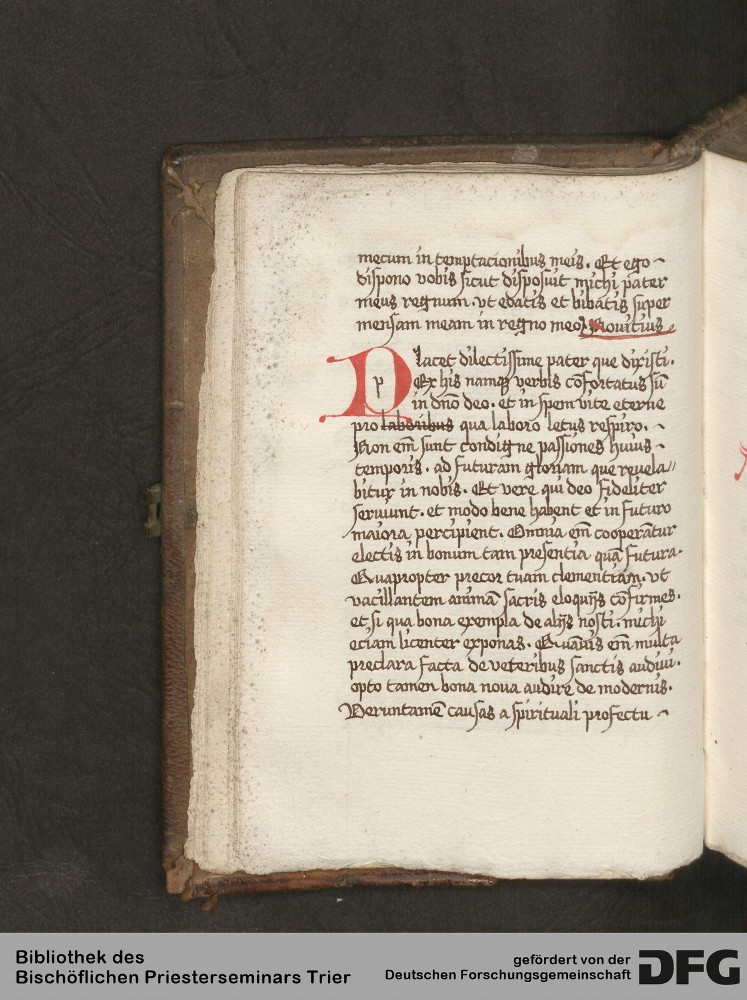 mecum in temptacionibus meis. Et ego
dispono vobis sicut disposuit michi pater
meus regnum. vt edatis et bibatis super
mensam meam in regno meo. Nouitius
Placet dilectissime pater que dixisti.
p Ex his namqꝫ verbis cõfortatus sũ
in dño deo. et in spem vite eterne
pro laboribus qua laboro letus respiro.
Non em̃ sunt condigne passiones huius
temporis. ad futuram gloriam que reuela//
bitur in nobis. Et vere qui deo fideliter
seruiunt. et modo bene habent et in futuro
maiora percipient. Omnia em̃ cooperãtur
electis in bonum tam presentia quã futura.
Quapropter precor tuam clementiam. vt
vacillantem animã sacris eloquijs cõfirmes.
et si qua bona exempla de alijs nosti. michi
eciam licenter exponas. Quãuis em̃ multa
preclara facta de veteribus sanctis audiui.
opto tamen bona noua audire de modernis.
Veruntamẽ causas a spirituali profectu
Bibliothek des
Bischöflichen Priesterseminars Trier
gefördert von der
Deutschen Forschungsgemeinschaft
DFG